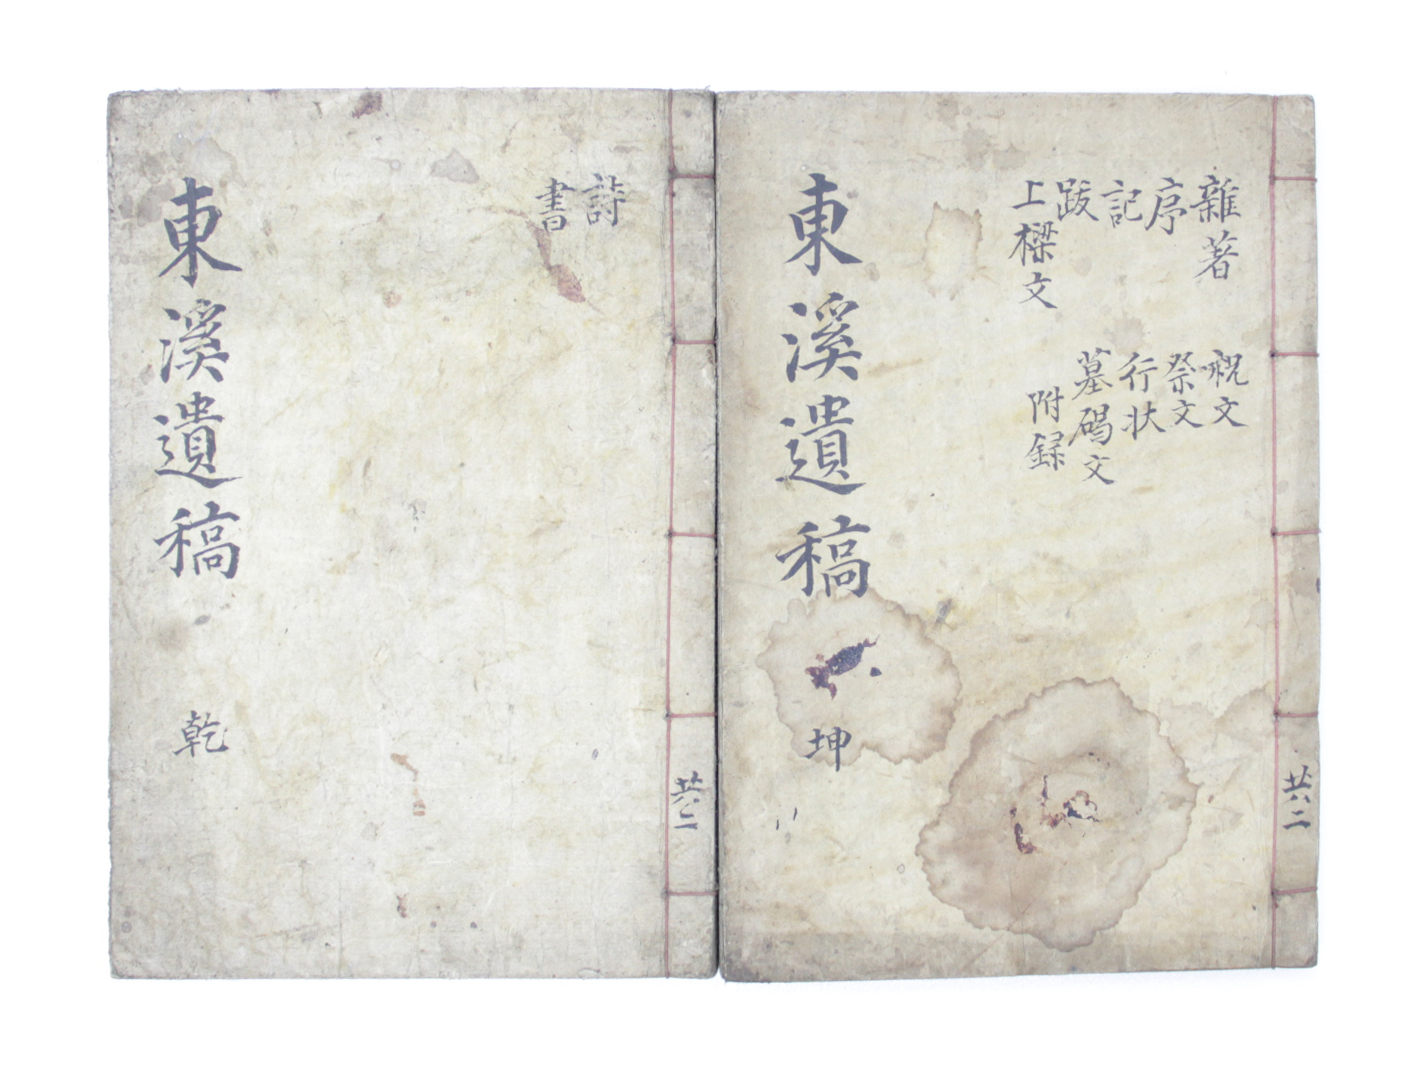 詩
書
東溪遺稿 乾
共二
雜著
序
記
跋
上樑文
祝文
祭文
行狀
墓碣文
附録
東溪遺稿 坤
共二